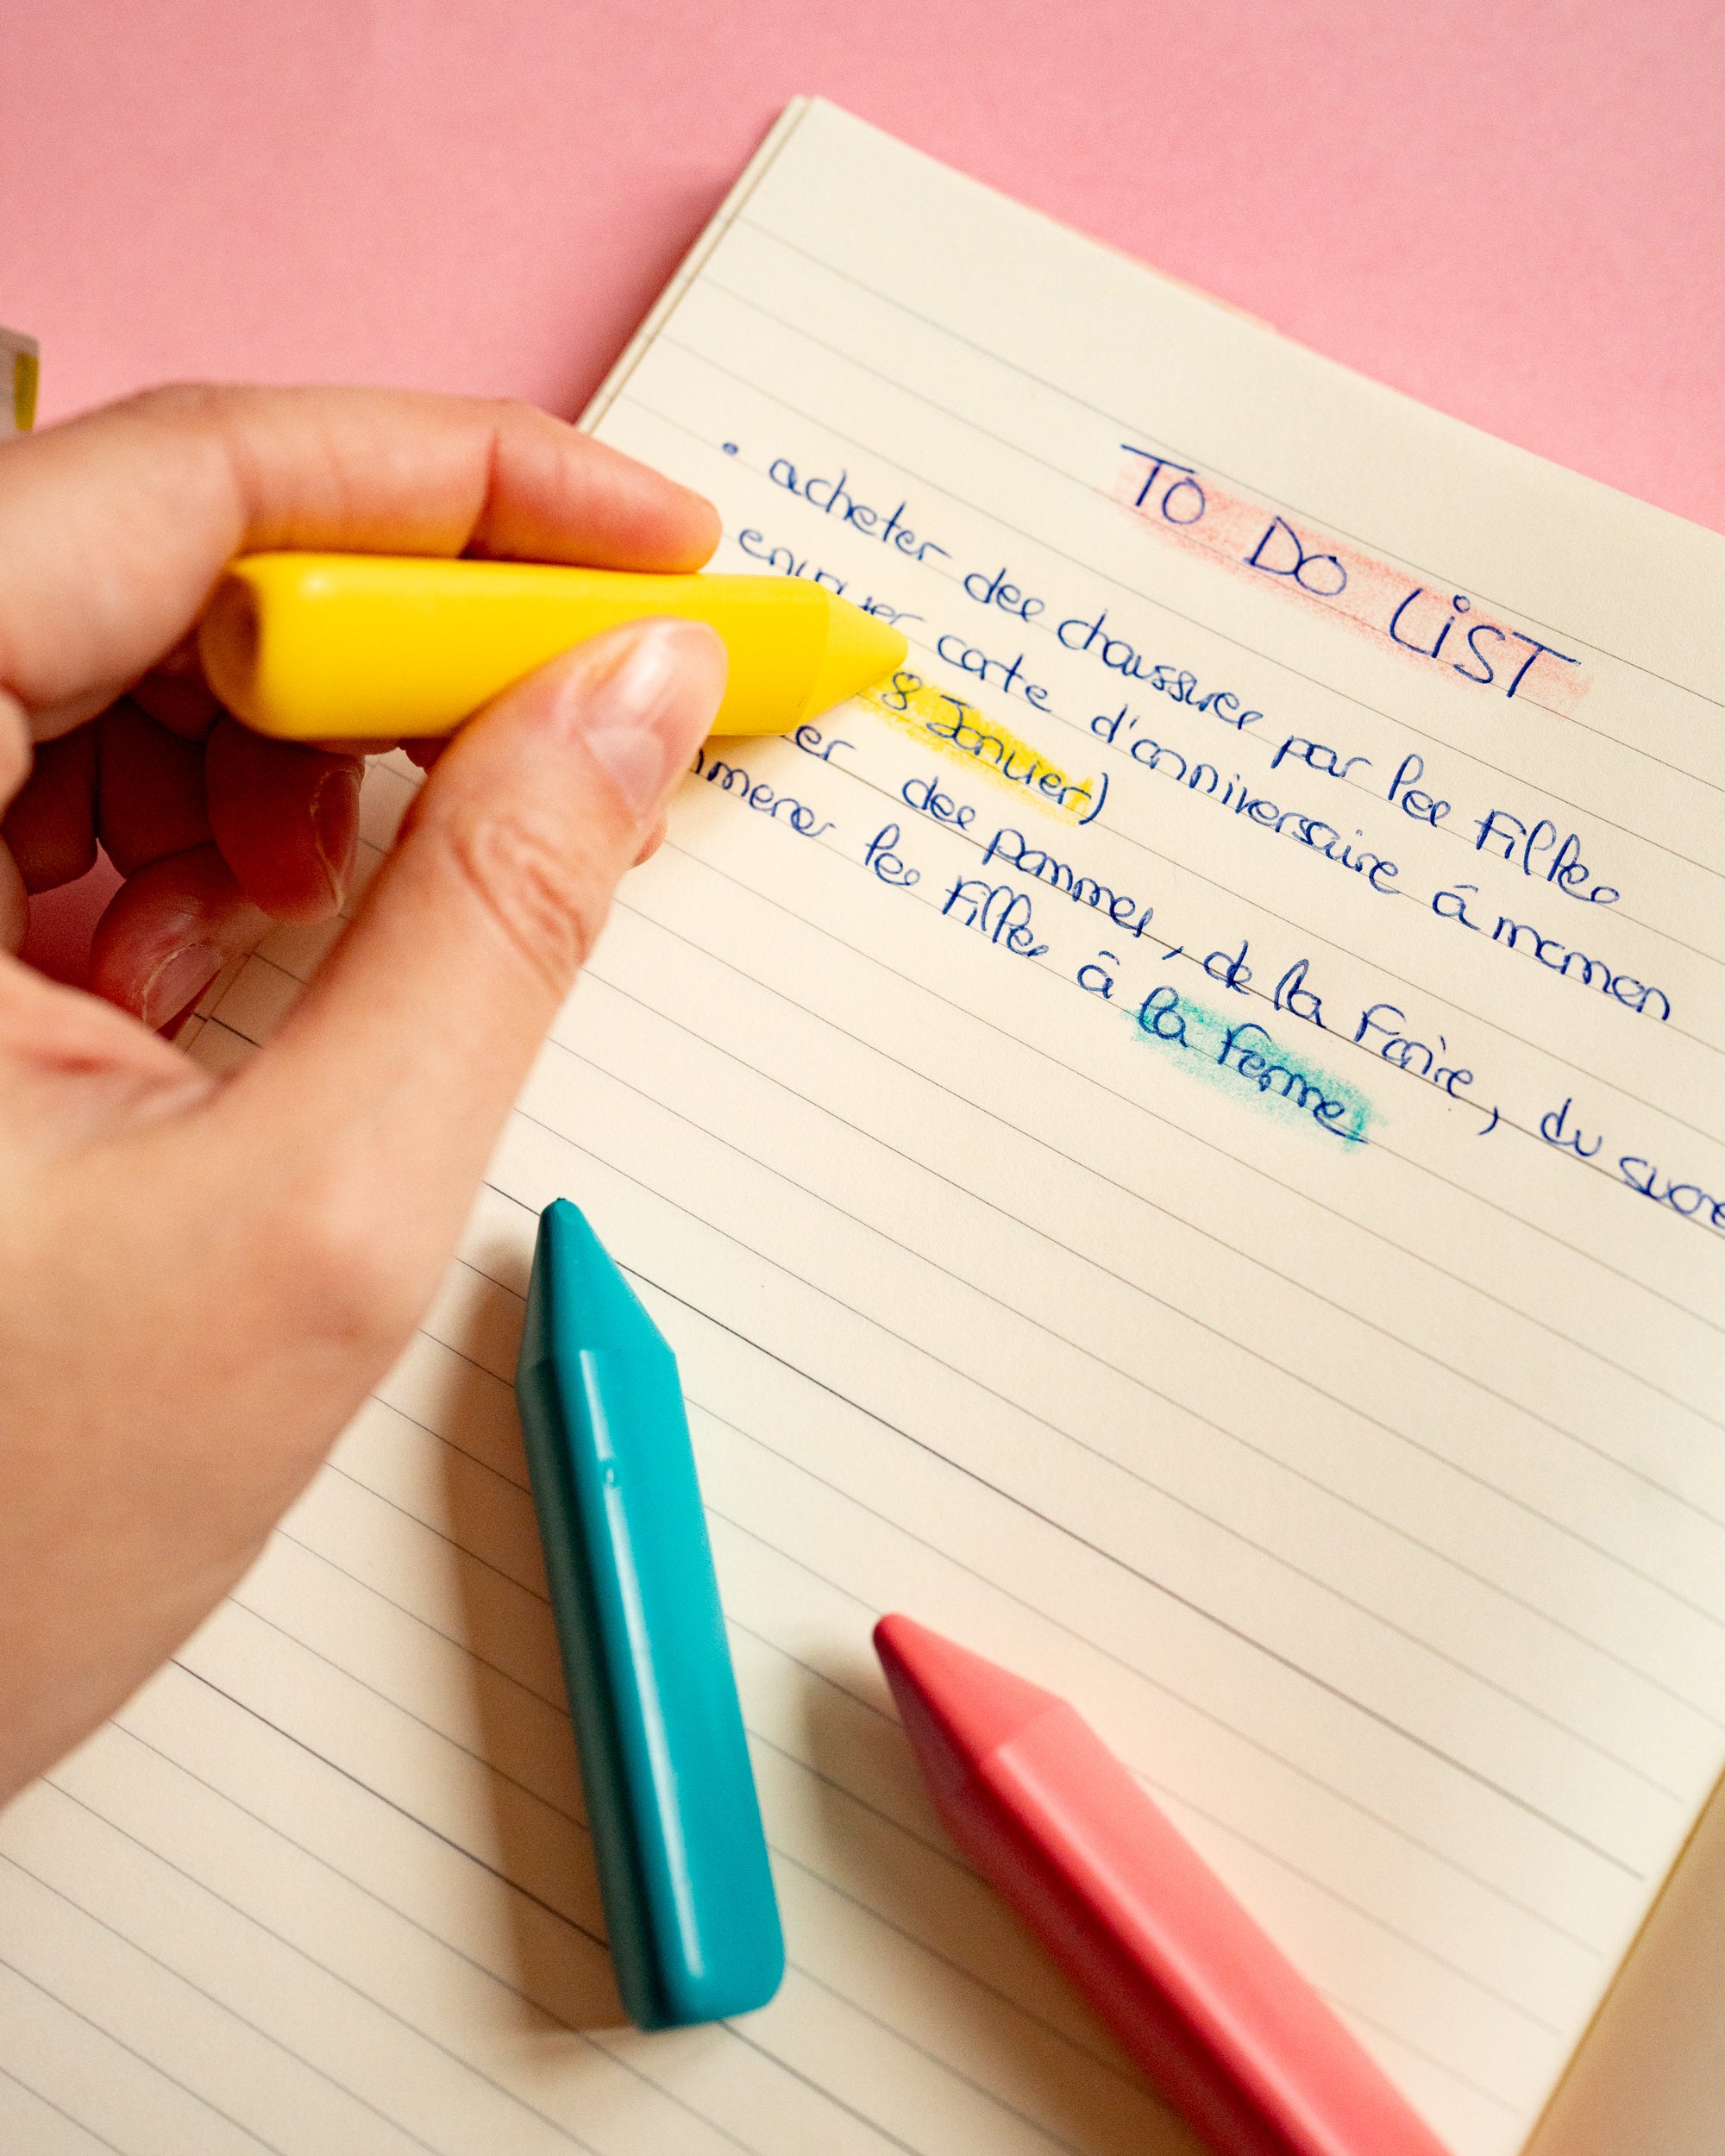 TO DO LiST
• acheter des chaussures par les filles
envoyer carte d'anniversaire á maman
8 Janvier)
des pommes, de la farine, du sucre
les filles à la ferme